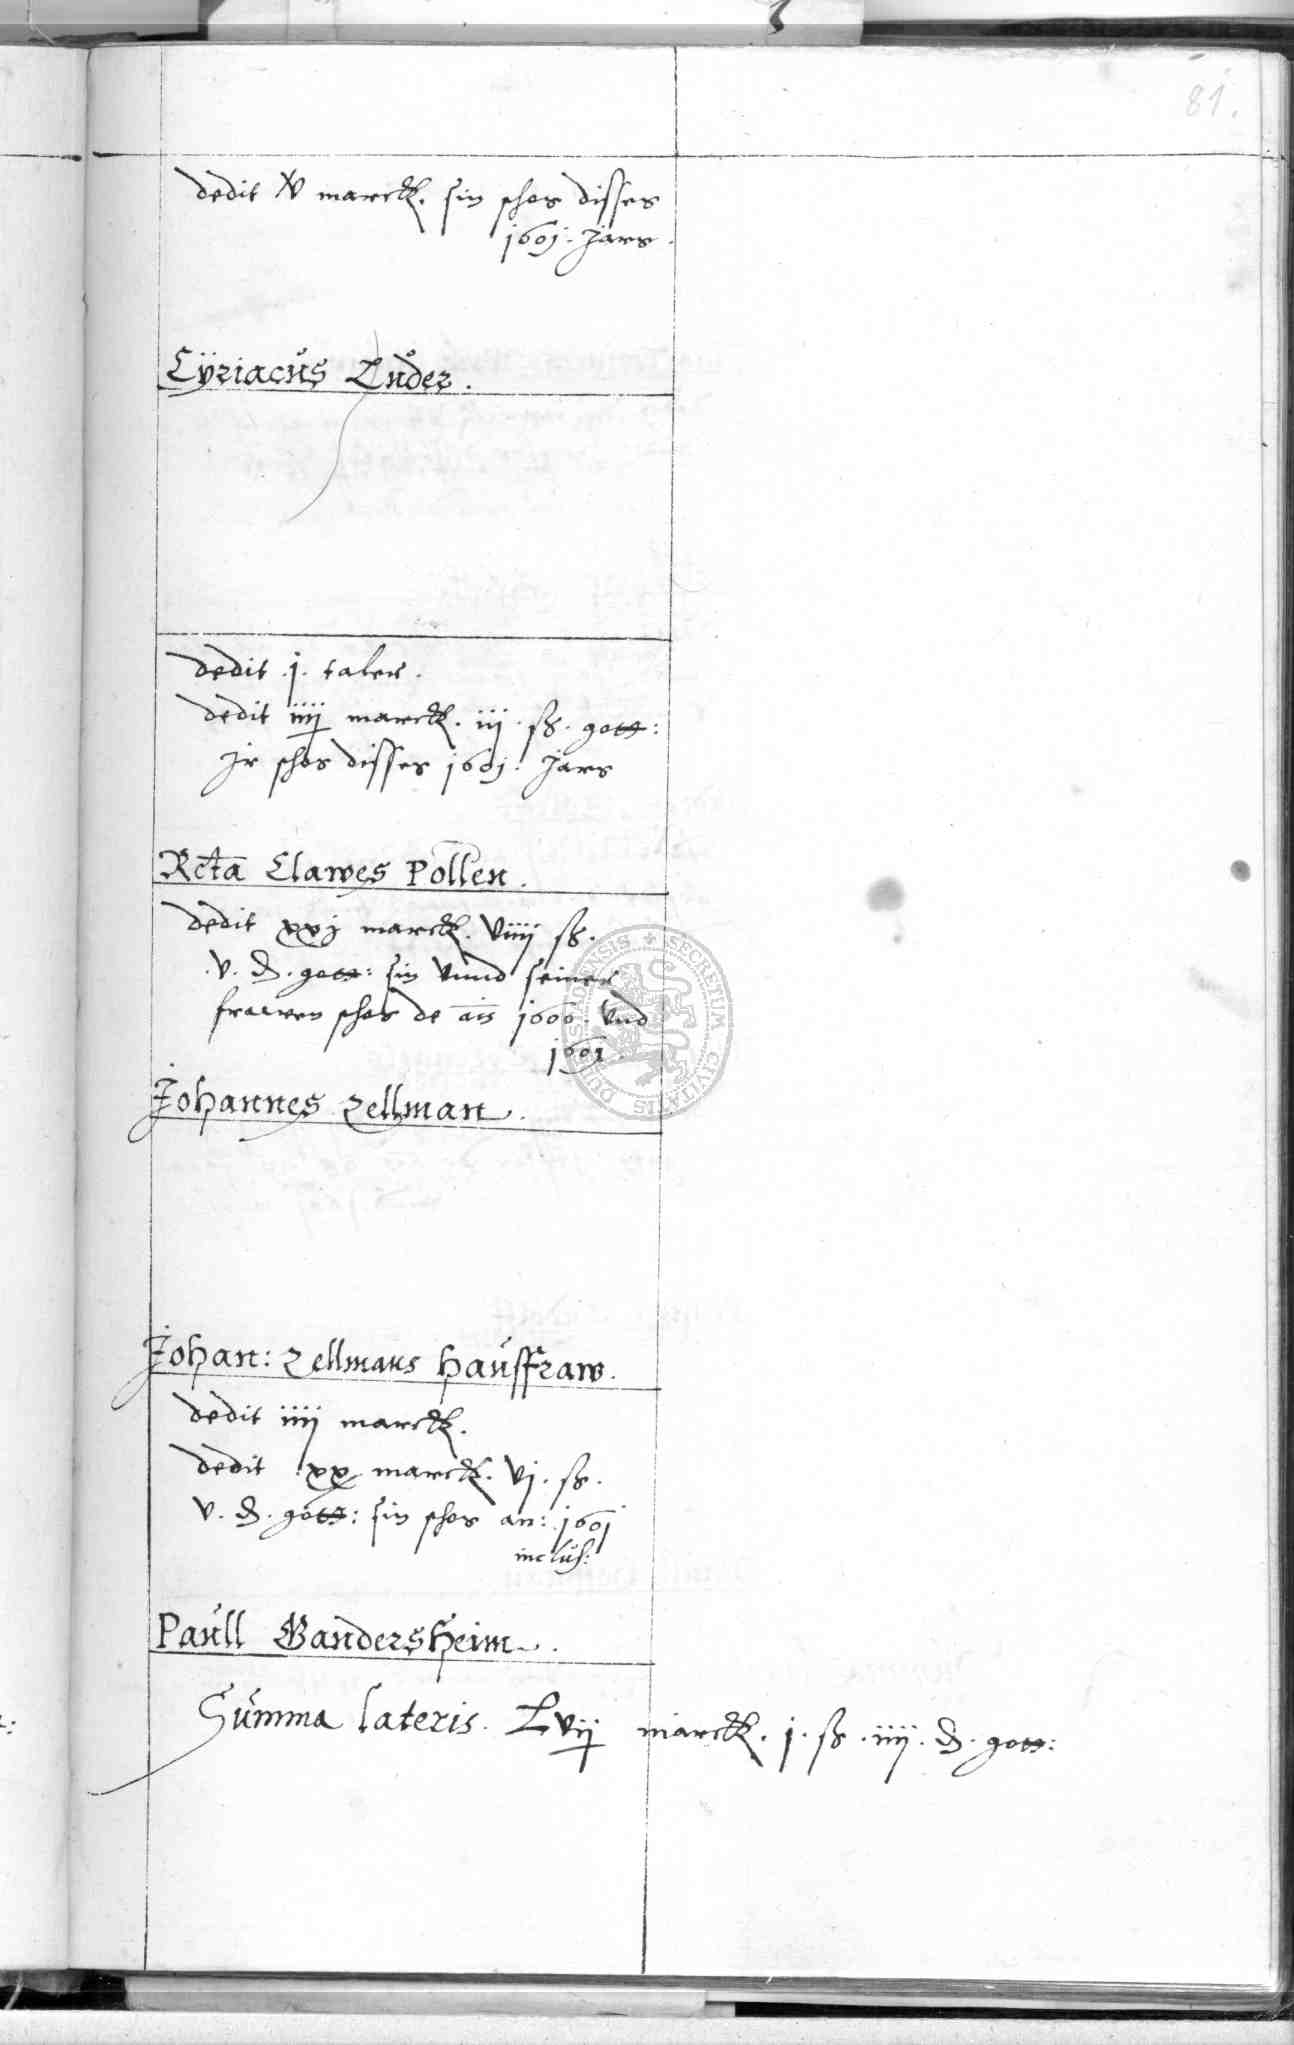 81.
dedit XV marck. sin schos disses
1601. Jars.
Cÿriacus Luder.
dedit .j. taler.
dedit iiij marck. iij. ß. gott:
Jr schos disses 1601. Jars
Rcta Clawes Pollen.
dedit xxj marck. viiij ß.
.v. ₰. gott: sin vnnd seiner
frawen schos de ais 1600. vnd
1601.
Johannes Zellman.
Johan: Zellmans haussfraw.
dedit iiij marck.
dedit xx marck. vj. ß.
v. ₰. gott: sin schos an: 1601
inclus:
Paull Gandersheim.
Summa lateris. Lvij marck. j. ß. iiij. ₰. gott:
SECRETUM CIVITATIS DUDERSTADENSIS